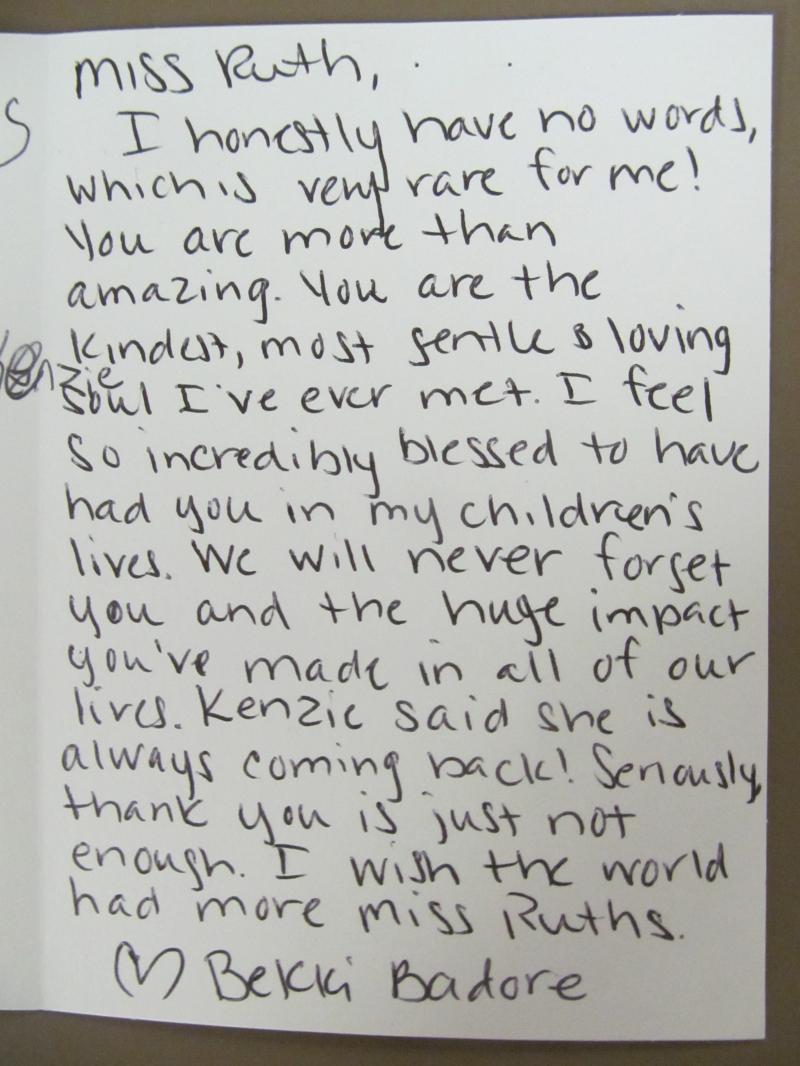 Miss Ruth,
I honestly have no words,
which is very rare for me!
You are more than
amazing. You are the
kindest, most gentle & loving
soul I've ever met. I feel
so incredibly blessed to have
had you in my children's
lives. We will never forget
you and the huge impact
you've made in all of our
lives. Kenzie said she is
always coming back! Seriously,
thank you is just not
enough. I wish the world
had more Miss Ruths.
♡ Bekki Badore